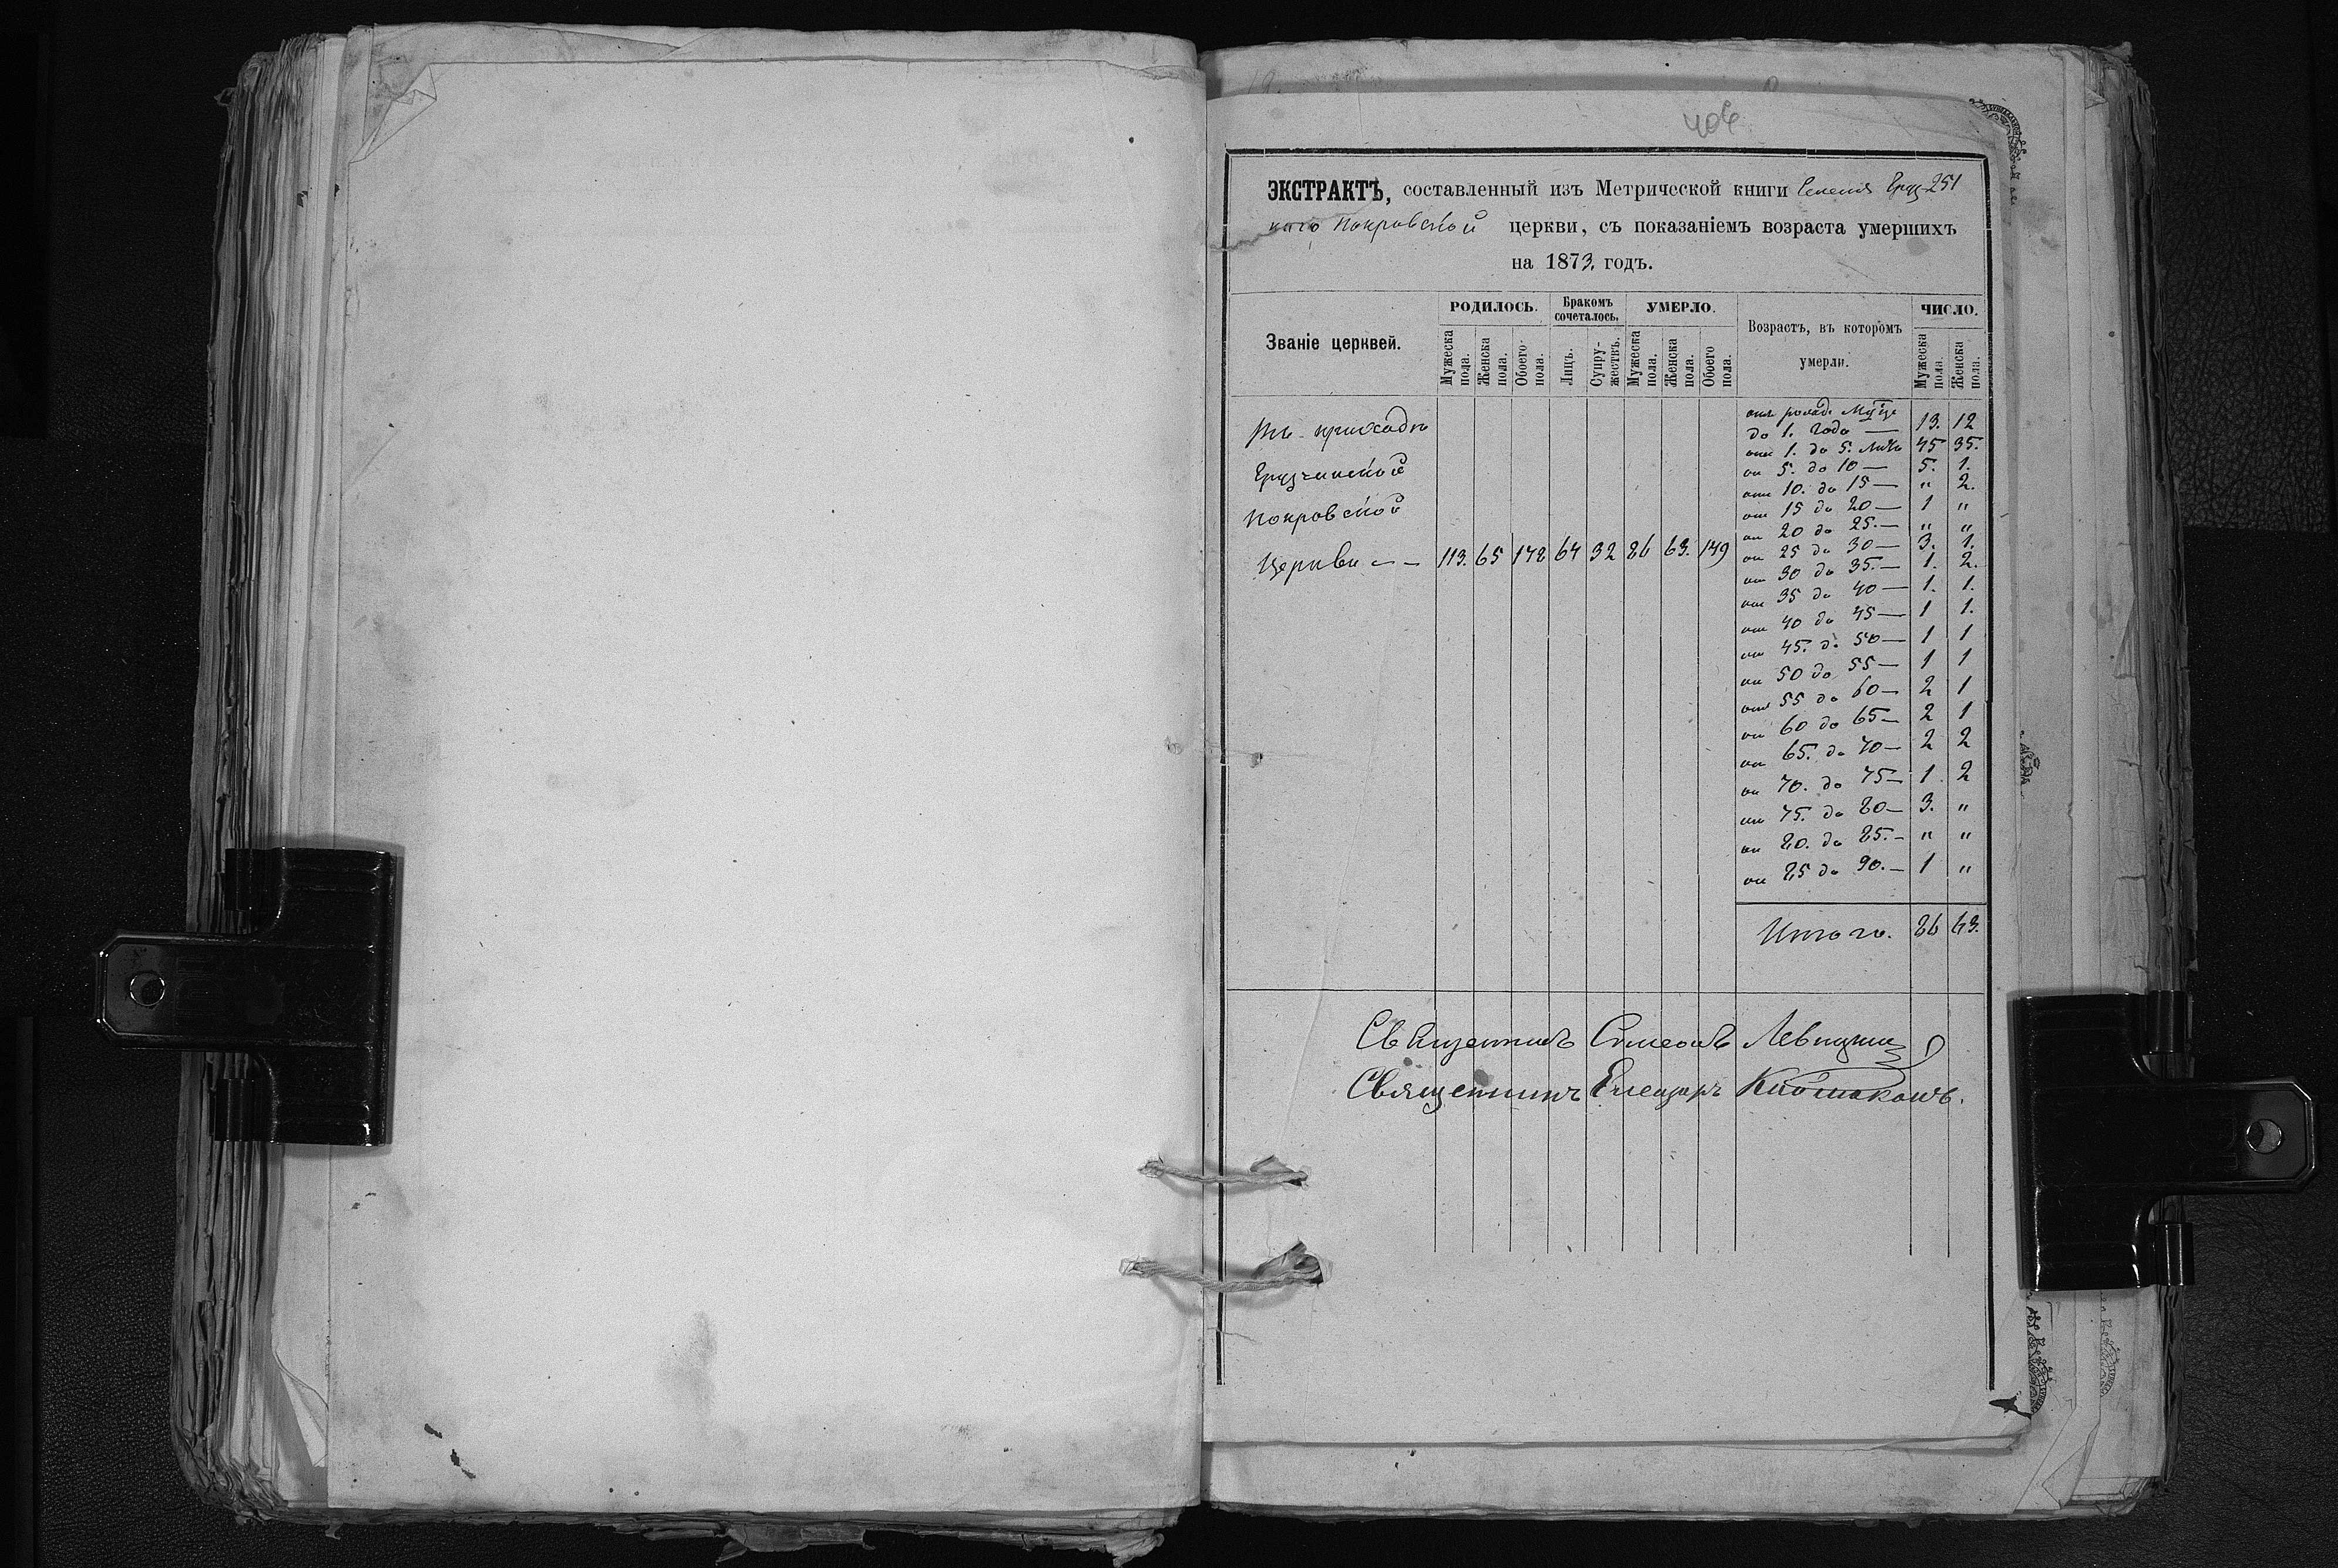 406
ЭКСТРАКТЪ, составленный изъ Метрической книги Селенія Груз- 251
каго Покровской церкви, съ показаніемъ возраста умершихъ
на 1873. годъ.
Званіе церквей. РОДИЛОСЬ. Бракомъ сочеталось. УМЕРЛО. Возрастъ, въ которомъ умерли. ЧИСЛО.
Мужеска пола. Женска пола. Обоего пола. Лицъ. Супружествъ. Мужеска пола. Женска пола. Обоего пола. Мужеска пола. Женска пола.
Въ приходѣ
Грузчинской
Покровской
Церкви - - 113. 65 178 64 32 86 63. 149
отъ рожд.
до 1. года — 13. 12
отъ 1. до 5. лѣтъ 45 35.
от 5. до 10 — 5. 1.
отъ 10. до 15 — " 2.
от 15 до 20 — 1 "
от 20 до 25. — " "
от 25 до 30 — 3. 1.
от 30 до 35. — 1. 2.
от 35 до 40 — 1. 1.
от 40 до 45 — 1 1.
от 45. до 50 — 1 1
от 50 до 55 — 1 1
от 55 до 60 — 2 1
от 60 до 65 — 2 1
от 65. до 70 — 2 2
от 70. до 75 — 1. 2
от 75. до 80 — 3. "
от 80. до 85. — " "
от 85 до 90. — 1 "
Итого. 86 63.
Священникъ Симеонъ Левицкій
Священникъ Елеазаръ